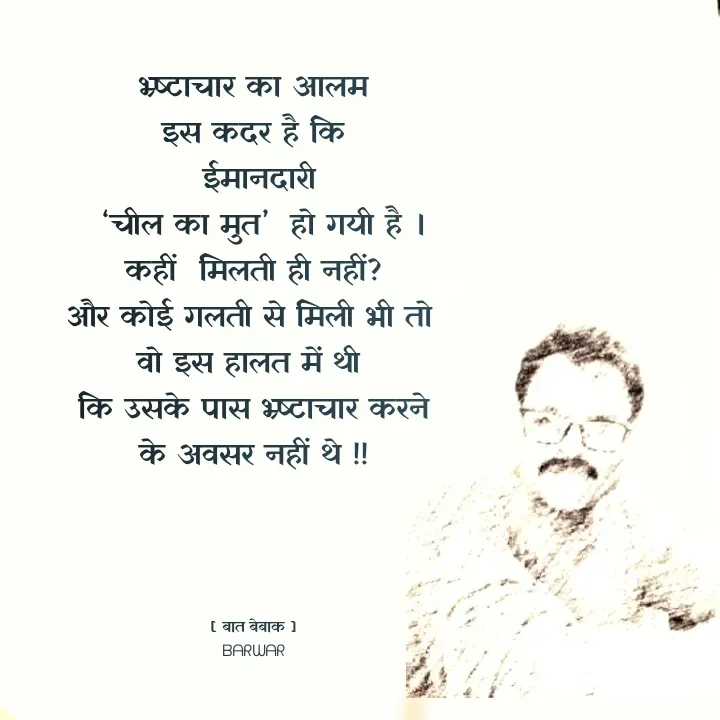 भ्रष्टाचार का आलम
इस कदर है कि
ईमानदारी
‘चील का मुत’ हो गयी है ।
कहीं मिलती ही नहीं?
और कोई गलती से मिली भी तो
वो इस हालत में थी
कि उसके पास भ्रष्टाचार करने
के अवसर नहीं थे !!
[ बात बेबाक ]
BARWAR